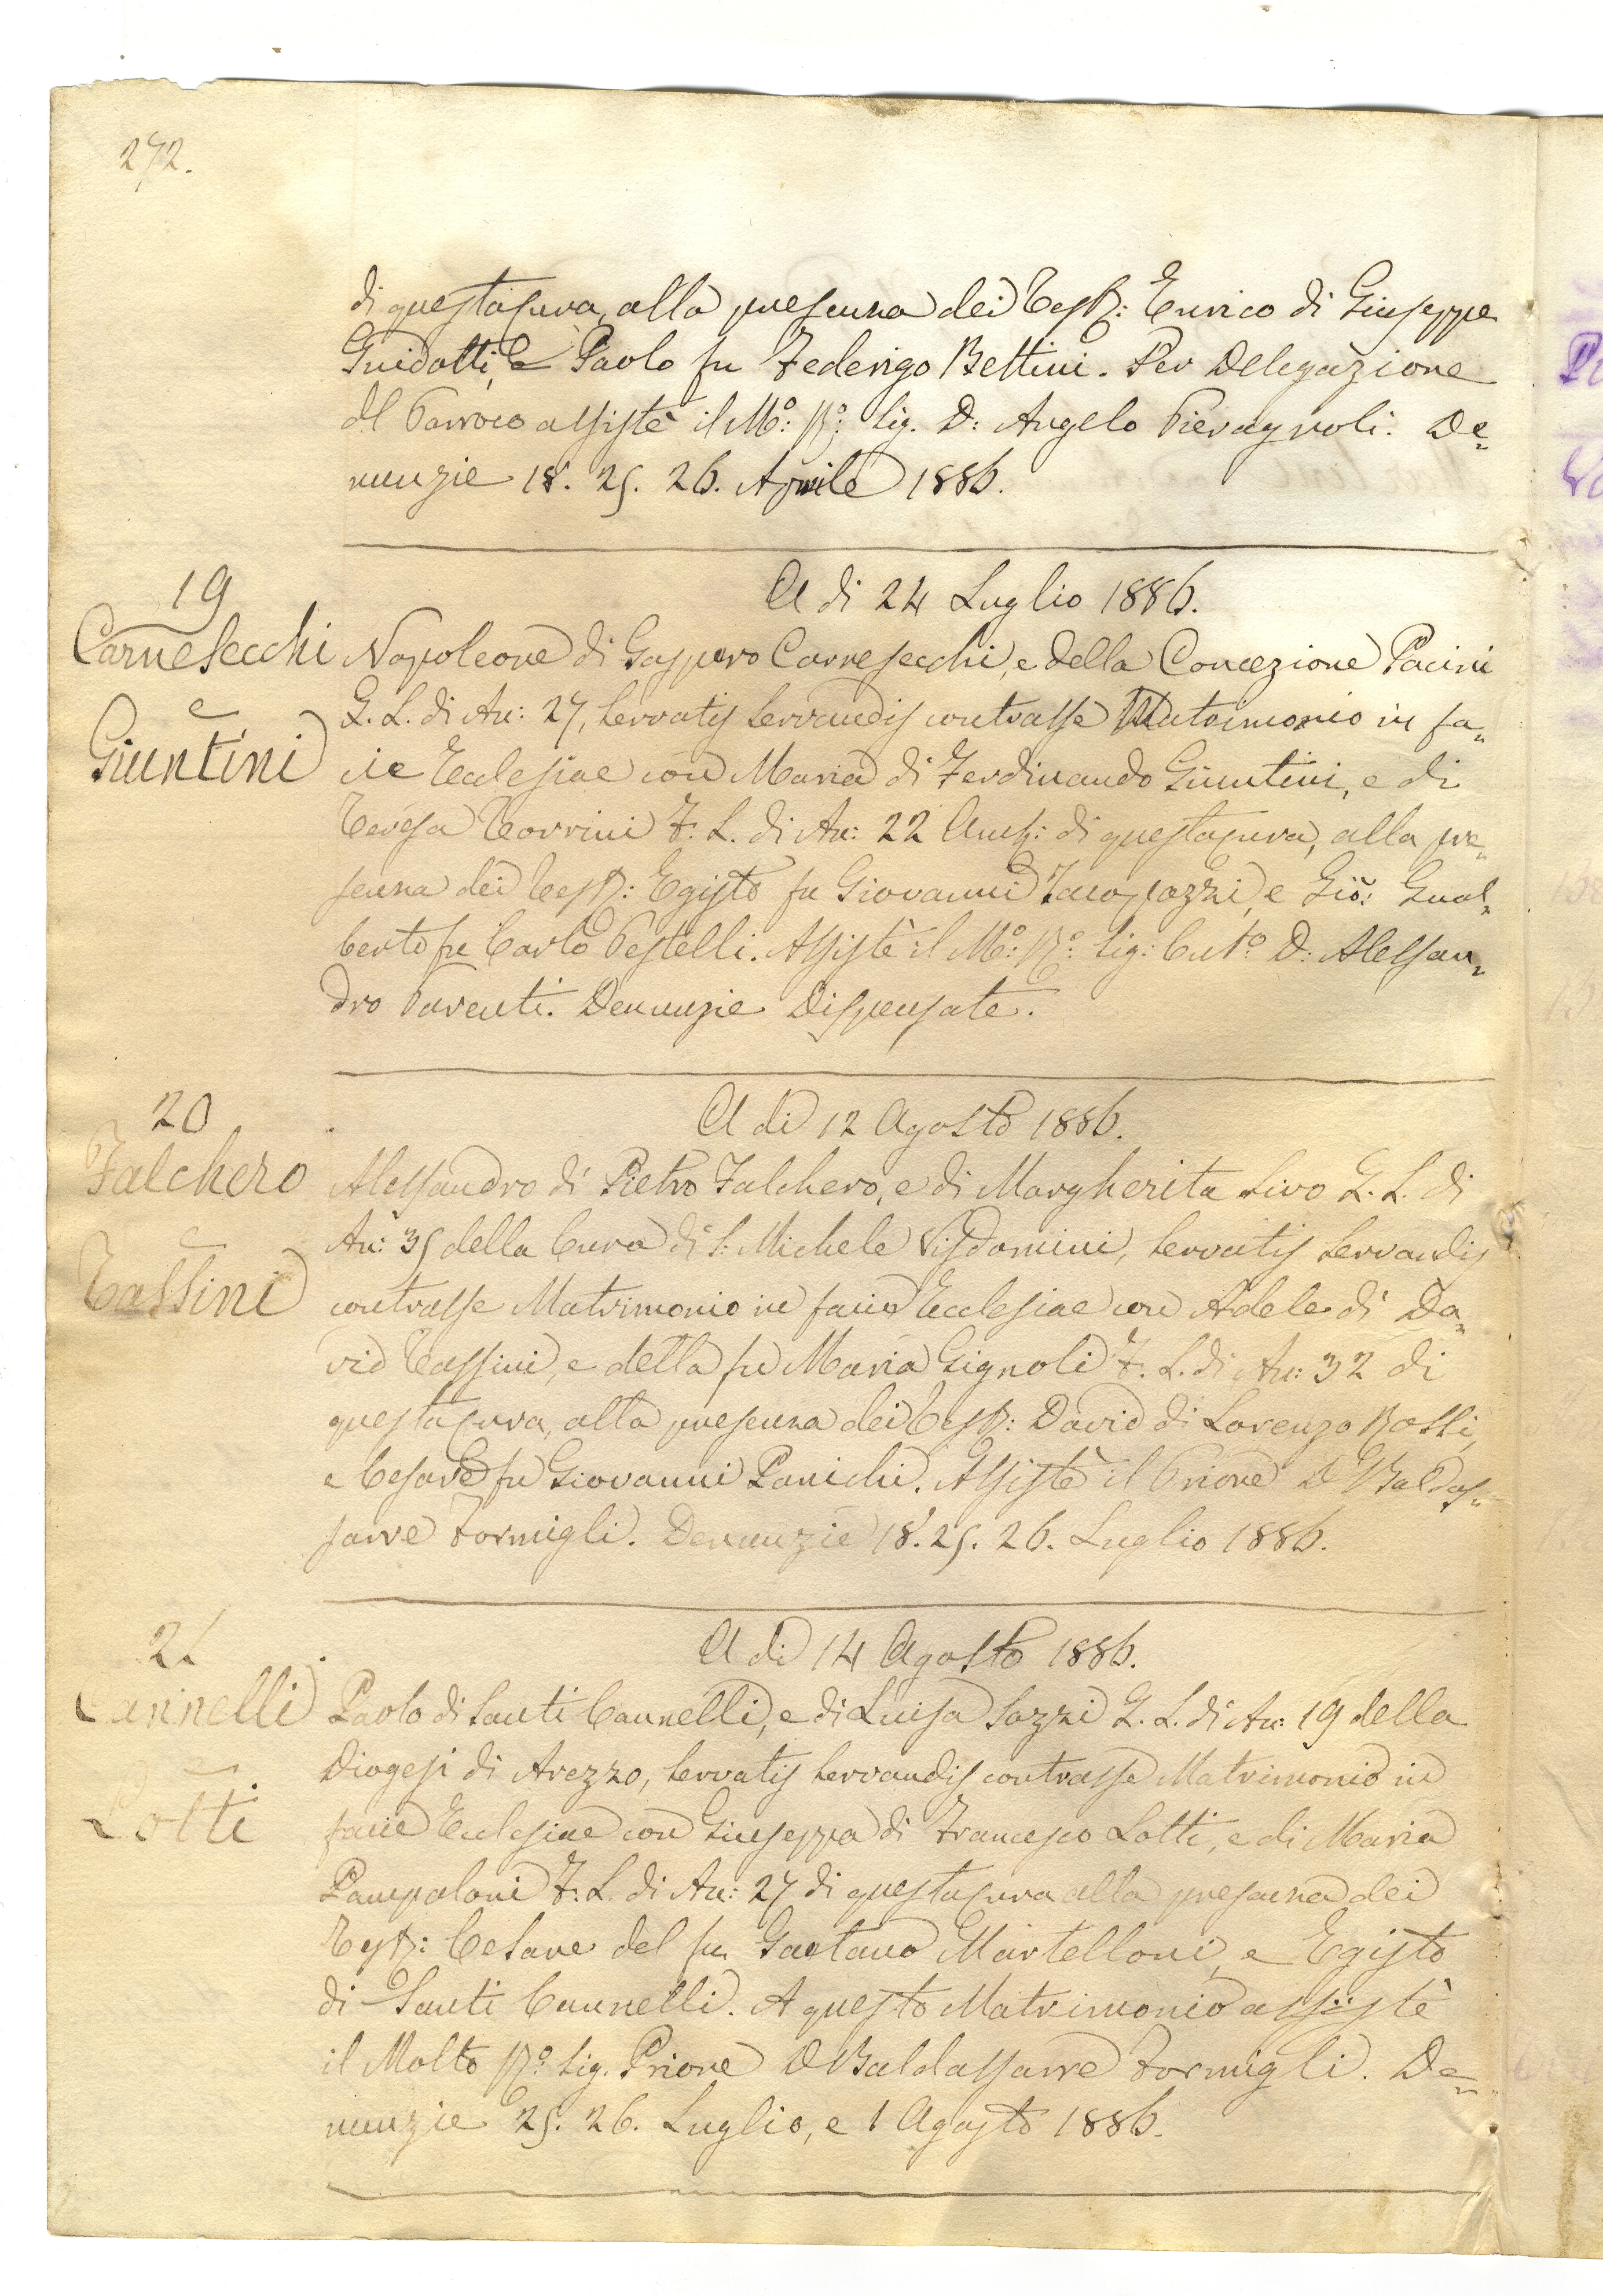 272.
di questa Cura, alla presenza dei Test: Enrico di Giuseppe
Guidotti, e Paolo fu Federigo Bettini. Per Delegazione
del Parroco assistè il Mo: Ro: Sig. D: Angelo Pieragnoli. De=
nunzie 18. 25. 26. Aprile 1886.
19
A di 24 Luglio 1886.
Carnesecchi
Napoleone di Gaspero Carnesecchi, e della Concezione Pacini
e
G. L. di An: 27, servatis servandis contrasse Matrimonio in fa=
Giuntini
cie Ecclesiae con Maria di Ferdinando Giuntini, e di
Teresa Torrini F. L. di An: 22 Amb: di questa Cura, alla pre=
senza dei Test: Egisto fu Giovanni e Gio: Gual=
berto fu Carlo Pestelli. Assistè il Mo: Ro: Sig: Cuto D: Alessan=
dro Parenti. Denunzie Dispensate.
20
A di 12 Agosto 1886.
Falchero
Alessandro di Pietro Falchero, e di Margherita Sivo G. L. di
e
An: 35 della Cura di S: Michele Visdomini, servatis servandis
Tassini
contrasse Matrimonio in facie Ecclesiae con Adele di Da=
vid Tassini, e della fu Maria Gignoli F. L. di An: 32 di
questa Cura, alla presenza dei Test: David di Lorenzo Rossi,
e Cesare fu Giovanni Panichi. Assistè il Priore D Baldas=
sarre Formigli. Denunzie 18. 25. 26. Luglio 1886.
21
A di 14 Agosto 1886.
Cannelli
Paolo di Santi Cannelli, e di Luisa Sazzi G. L. di An: 19 della
e
Diogesi di Arezzo, servatis servandis contrasse Matrimonio in
Lotti
facie Ecclesiae con Giuseppa di Francesco Lotti, e di Maria
Pampaloni F. L. di An: 27 di questa Cura alla presenza dei
Test: Cesare del fu Gaetano Martelloni, e Egisto
di Santi Cannelli. A questo Matrimonio assistè
il Molto Ro: Sig. Priore D Baldassarre Formigli. De=
nunzie 25. 26. Luglio, e 1 Agosto 1886.